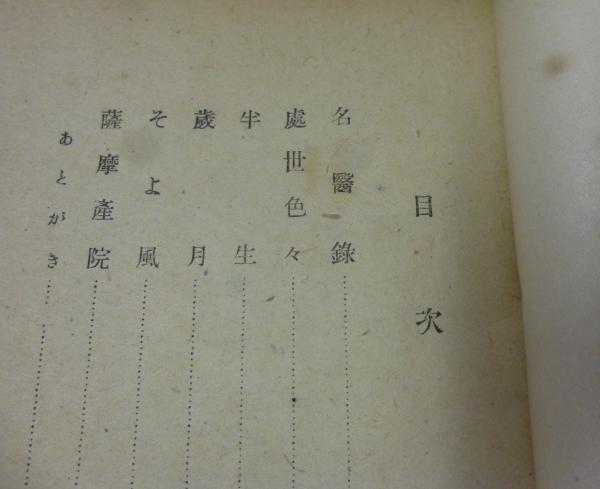 目次
名醫錄
處世色々
半生
歲月
そよ風
薩摩產院
あとがき